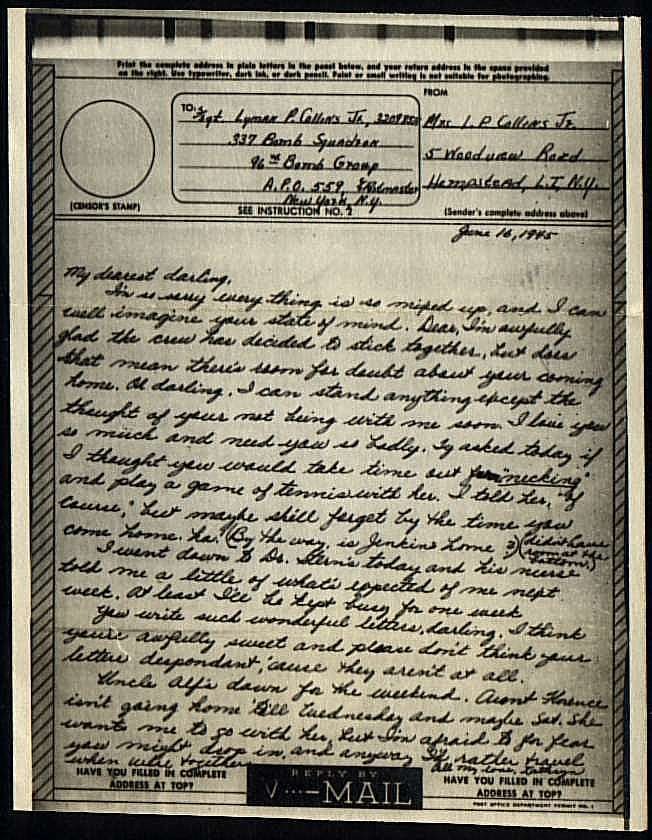 Print the complete address in plain letters in the panel below, and your return address in the space provided
on the right. Use typewriter, dark ink, or dark pencil. Faint or small writing is not suitable for photographing.
FROM
TO:
S/Sgt Lyman P. Collins Jr.,
337 Bomb Squadron
96th Bomb Group
A.P.O. 559, % Postmaster
New York, N.Y.
Mrs L. P. Collins Jr.
5 Woodview Road
Hempstead, L.I., N.Y.
(CENSOR'S STAMP)
SEE INSTRUCTION NO. 2
(Sender's complete address above)
June 16, 1945
My dearest darling,
I'm so sorry every thing is so mixed up, and I can
well imagine your state of mind. Dear, I'm awfully
glad the crew has decided to stick together, but does
that mean there's room for doubt about your coming
home. Oh darling, I can stand anything except the
thought of your not being with me soon. I love you
so much and need you so badly. asked today if
I thought you would take time out from "necking"
and play a game of tennis with her. I told her, "of
course," but maybe she'll forget by the time you
come home. ha! (By the way, is Jenkins home ?) (didn't have
room at the
bottom.)
I went down to Dr. Stern's today and his nurse
told me a little of what's expected of me next
week. At least I'll be kept busy for one week
You write such wonderful letters, darling. I think
you're awfully sweet and please don't think your
letters despondant, 'cause they aren't at all.
Uncle Alf's down for the weekend. Aunt Florence
isn't going home till Wednesday and maybe Sat. She
wants me to go with her, but I'm afraid to for fear
you might drop in, and anyway I'd rather travel
when we're together.
All my love, Kathryn
HAVE YOU FILLED IN COMPLETE
ADDRESS AT TOP?
REPLY BY
V...-MAIL
HAVE YOU FILLED IN COMPLETE
ADDRESS AT TOP?
POST OFFICE DEPARTMENT PERMIT NO. 1